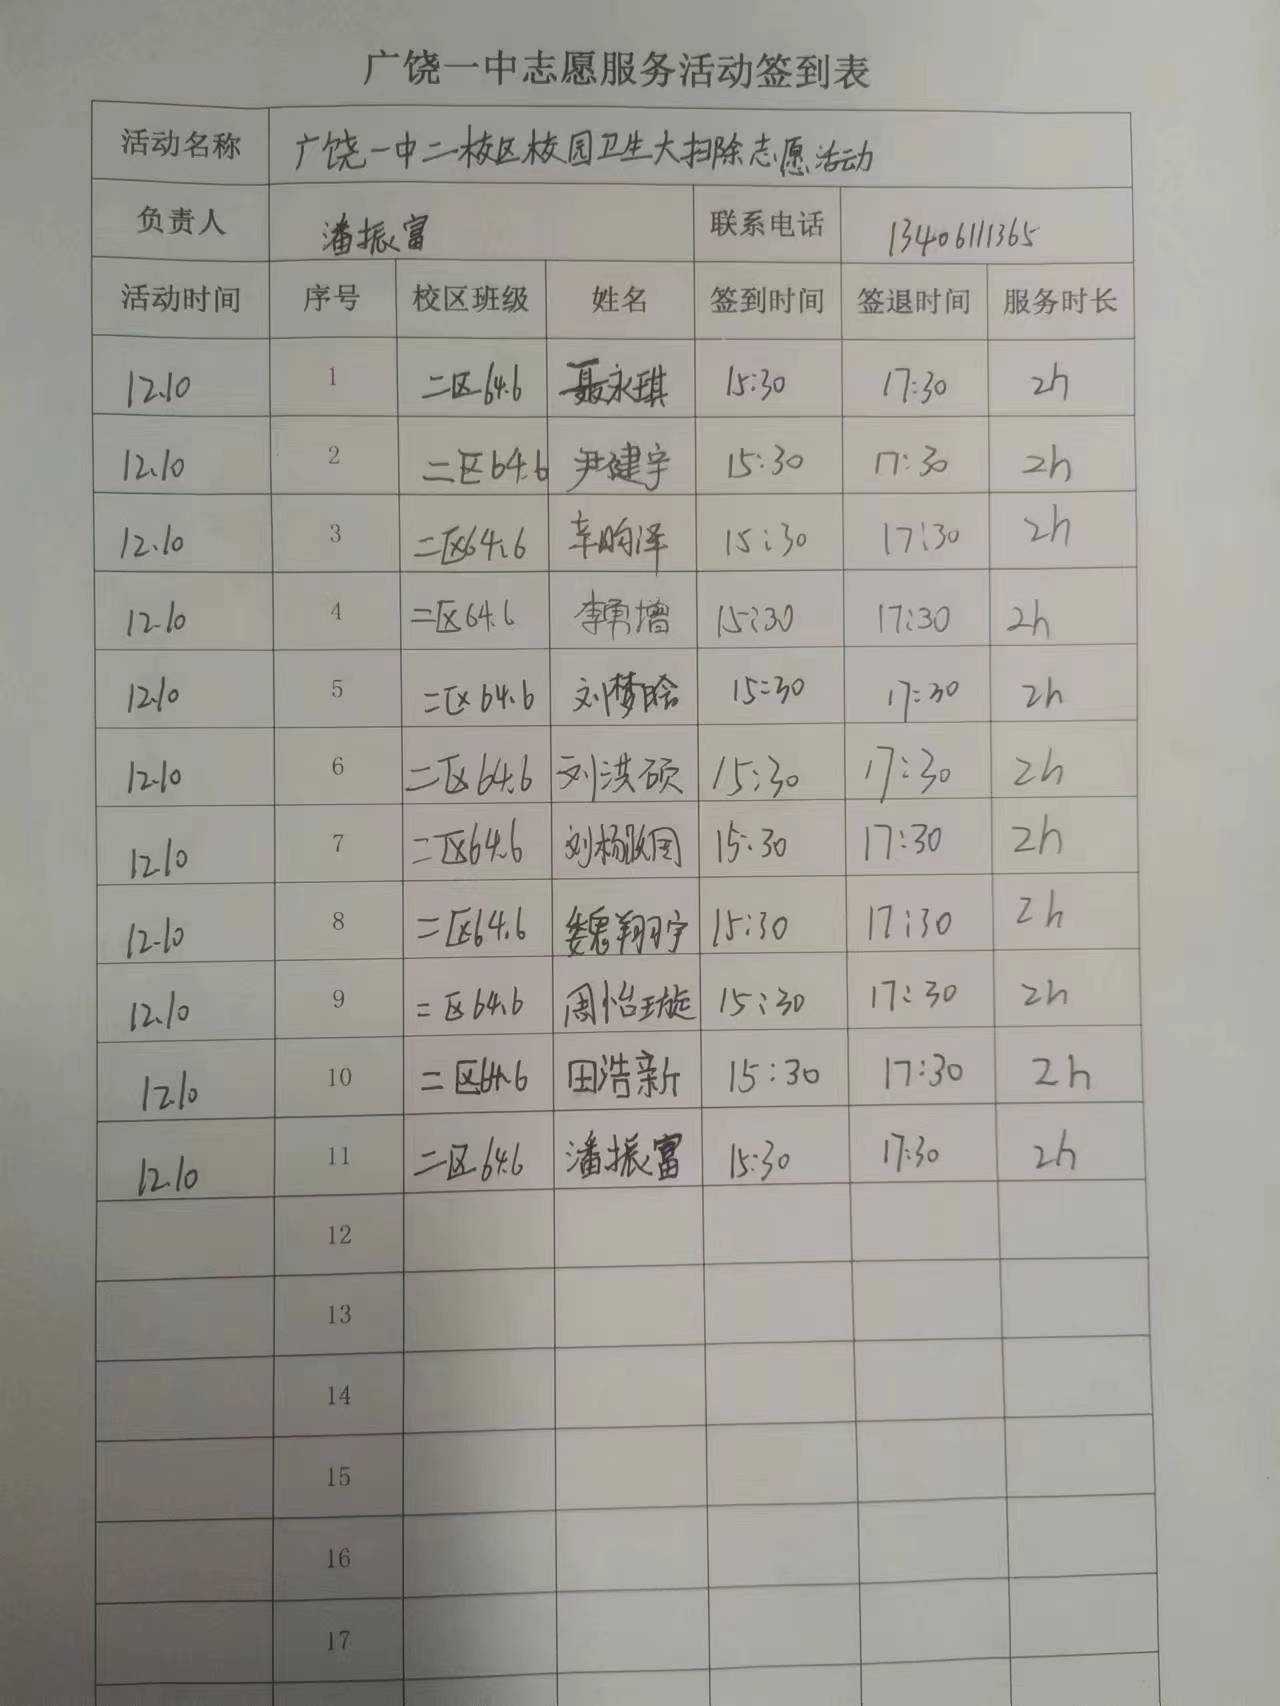 广饶一中志愿服务活动签到表
活动名称 广饶一中二校区校园卫生大扫除志愿活动
负责人 潘振富 联系电话 13406111365
活动时间 序号 校区班级 姓名 签到时间 签退时间 服务时长
12.10 1 二区64.6 聂永琪 15:30 17:30 2h
12.10 2 二区64.6 尹建宇 15:30 17:30 2h
12.10 3 二区64.6 辛昀泽 15:30 17:30 2h
12.10 4 二区64.6 李勇增 15:30 17:30 2h
12.10 5 二区64.6 刘梦晗 15:30 17:30 2h
12.10 6 二区64.6 刘洪硕 15:30 17:30 2h
12.10 7 二区64.6 15:30 17:30 2h
12.10 8 二区64.6 魏翔宇 15:30 17:30 2h
12.10 9 二区64.6 周怡璇 15:30 17:30 2h
12.10 10 二区64.6 田浩新 15:30 17:30 2h
12.10 11 二区64.6 潘振富 15:30 17:30 2h
12
13
14
15
16
17